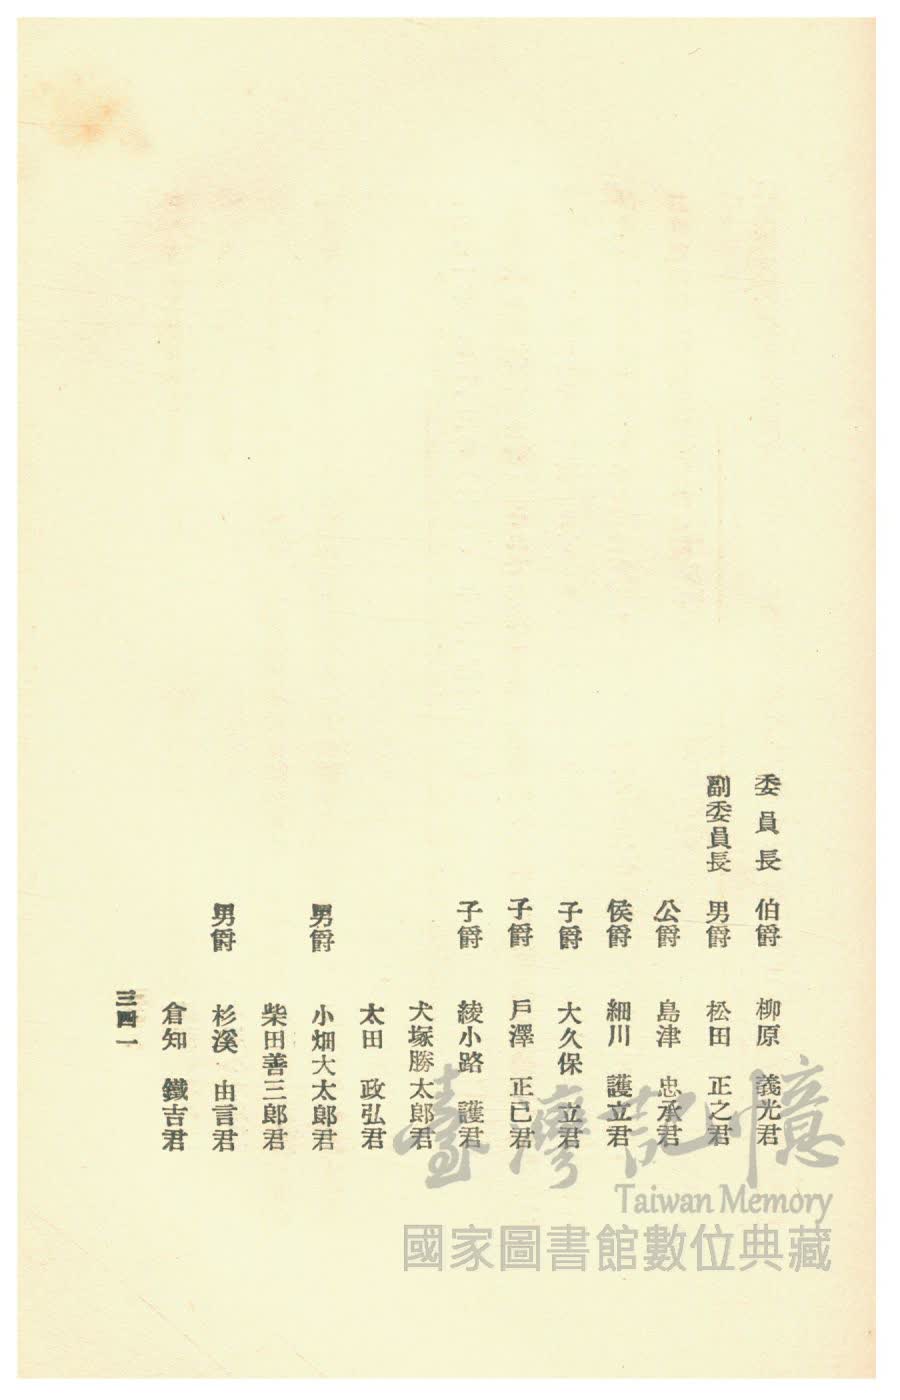 委員長 伯爵 柳原 義光君
副委員長 男爵 松田 正之君
公爵 島津 忠承君
侯爵 細川 護立君
子爵 大久保 立君
子爵 戶澤 正已君
子爵 綾小路 護君
犬塚勝太郎君
太田 政弘君
男爵 小畑大太郎君
柴田善三郎君
男爵 杉溪 由言君
倉知 鐵吉君
三四一
臺灣記憶
Taiwan Memory
國家圖書館數位典藏